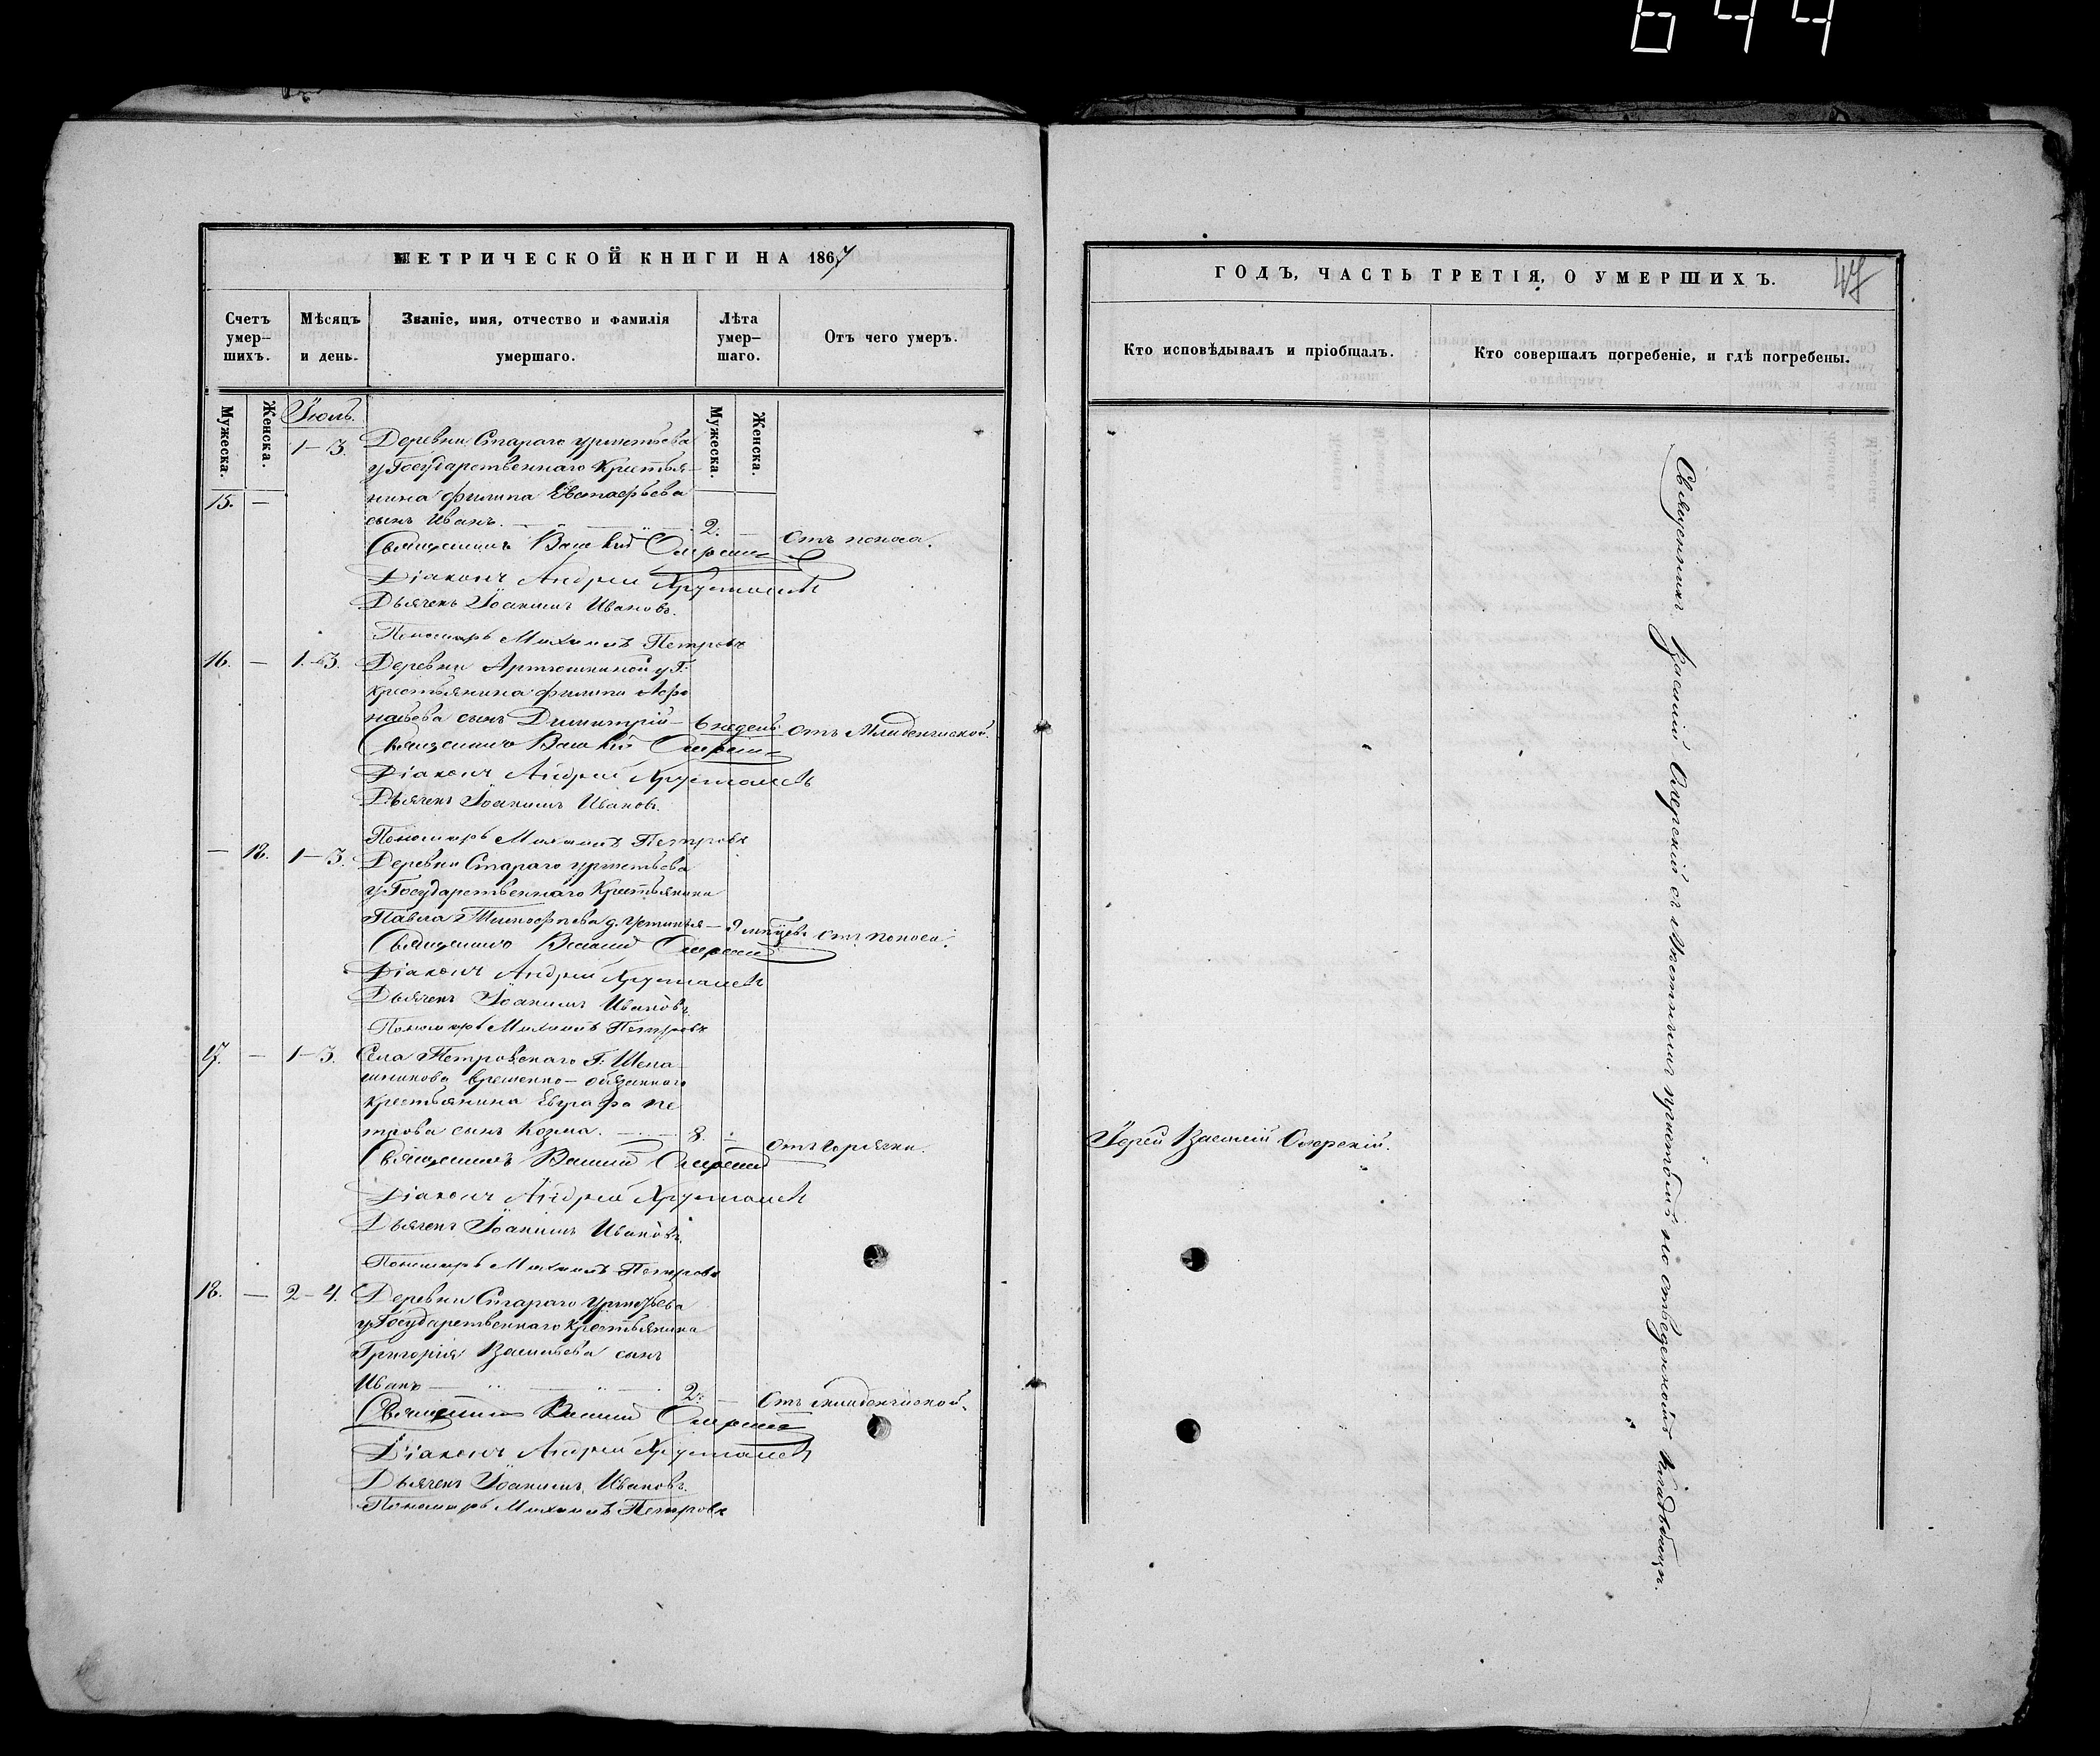 644
МЕТРИЧЕСКОЙ КНИГИ НА 1867
Счетъ умер-шихъ.
Мѣсяцъ и день.
Званіе, имя, отчество и фамилія умершаго.
Лѣта умер-шаго.
Отъ чего умеръ.
Мужеска.
Женска.
Мужеска.
Женска.
Іюль.
15. — 1–3. Деревни Стараго Урметьева
у Государственнаго Крестья-
нина Филипа Евстафьева
сынъ Иванъ. — 2. — Отъ поноса.
Священникъ Василій Озерскій
Діаконъ Андрей Хрусталевъ
Дьячекъ Іоакимъ Ивановъ.
Пономарь Михаилъ Петровъ
16. — 1–3. Деревни Артюшкиной у Г.
крестьянина Филипа Афо
насьева сынъ Димитрій — 6 недель Отъ Младенческой.
Священникъ Василій Озерскій
Діаконъ Андрей Хрусталевъ
Дьячекъ Іоакимъ Ивановъ.
Пономарь Михаилъ Петровъ
— 18. 1–3. Деревни Стараго Урметьева
у Государственнаго Крестьянина
Павла Тимофеева д. Устинья — Отъ поноса.
Священникъ Василій Озерскій
Діаконъ Андрей Хрусталевъ
Дьячекъ Іоакимъ Ивановъ.
Пономарь Михаилъ Петровъ
17. — 1–3. Села Петровскаго Г. Шела
шникова временно-обязаннаго
крестьянина Евграфа Пе
трова сынъ Козма. — 8. — Отъ горячки.
Священникъ Василій Озерскій
Діаконъ Андрей Хрусталевъ
Дьячекъ Іоакимъ Ивановъ.
Пономарь Михаилъ Петровъ
18. — 2–4. Деревни Стараго Урметьева
у Государственнаго Крестьянина
Григорія Васильева сынъ
Иванъ — 2. — Отъ младенческой.
Священникъ Василій Озерскій
Діаконъ Андрей Хрусталевъ
Дьячекъ Іоакимъ Ивановъ.
Пономарь Михаилъ Петровъ
ГОДЪ, ЧАСТЬ ТРЕТІЯ, О УМЕРШИХЪ.
47
Кто исповѣдывалъ и пріобщалъ.
Кто совершалъ погребеніе, и гдѣ погребены.
Іерей Василій Озерскій.
Священникъ Василій Озерскій съ Мѣстнымъ причтомъ на отведенномъ Кладбищѣ.